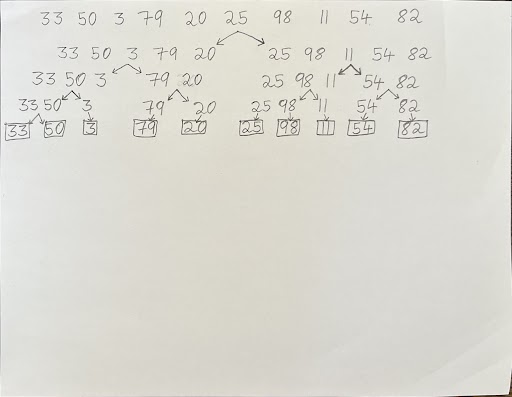 33 50 3 79 20 25 98 11 54 82
33 50 3 79 20 25 98 11 54 82
33 50 3 79 20 25 98 11 54 82
33 50 3 79 20 25 98 11 54 82
33 50 3 79 20 25 98 11 54 82